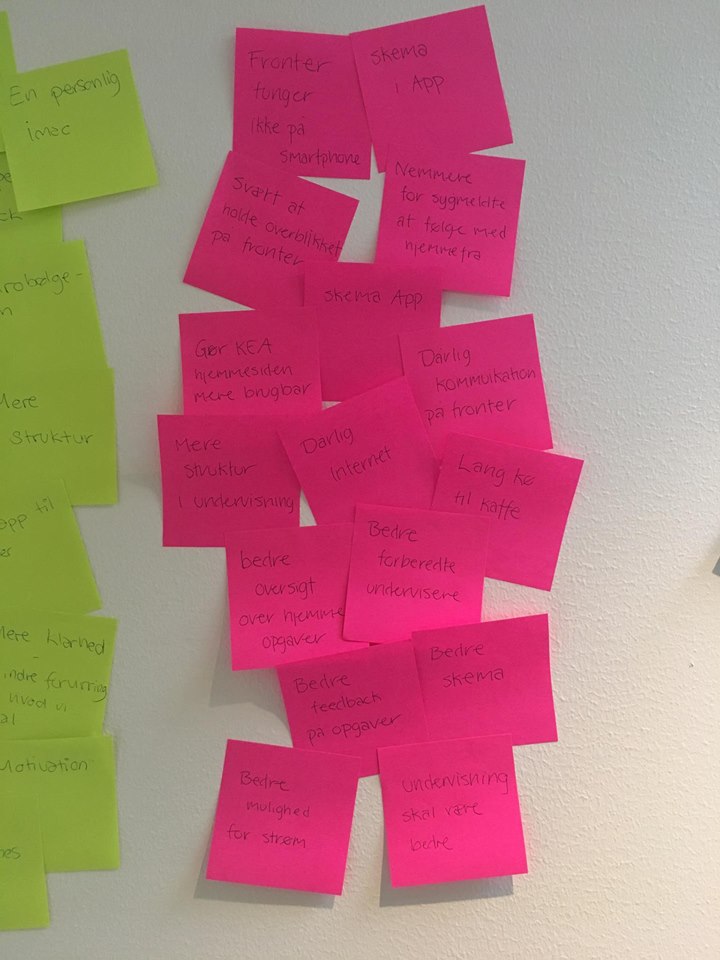 En personlig
imac
robølge-
Mere
struktur
app til
mere klarhed
-
indre forvirring
hvad vi
Motivation
Fronter
funger
ikke på
smartphone
skema
i APP
Svært at
holde overblikket
på fronter
Nemmere
for sygmeldte
at følge med
hjemmefra
skema App
Gør KEA
hjemmesiden
mere brugbar
Dårlig
kommuikation
på fronter
Mere
struktur
i undervisning
Dårlig
internet
Lang kø
til kaffe
bedre
oversigt
over hjemme
opgaver
Bedre
forberedte
undervisere
Bedre
feedback
på opgaver
Bedre
skema
Bedre
mulighed
for strøm
undervisning
skal være
bedre